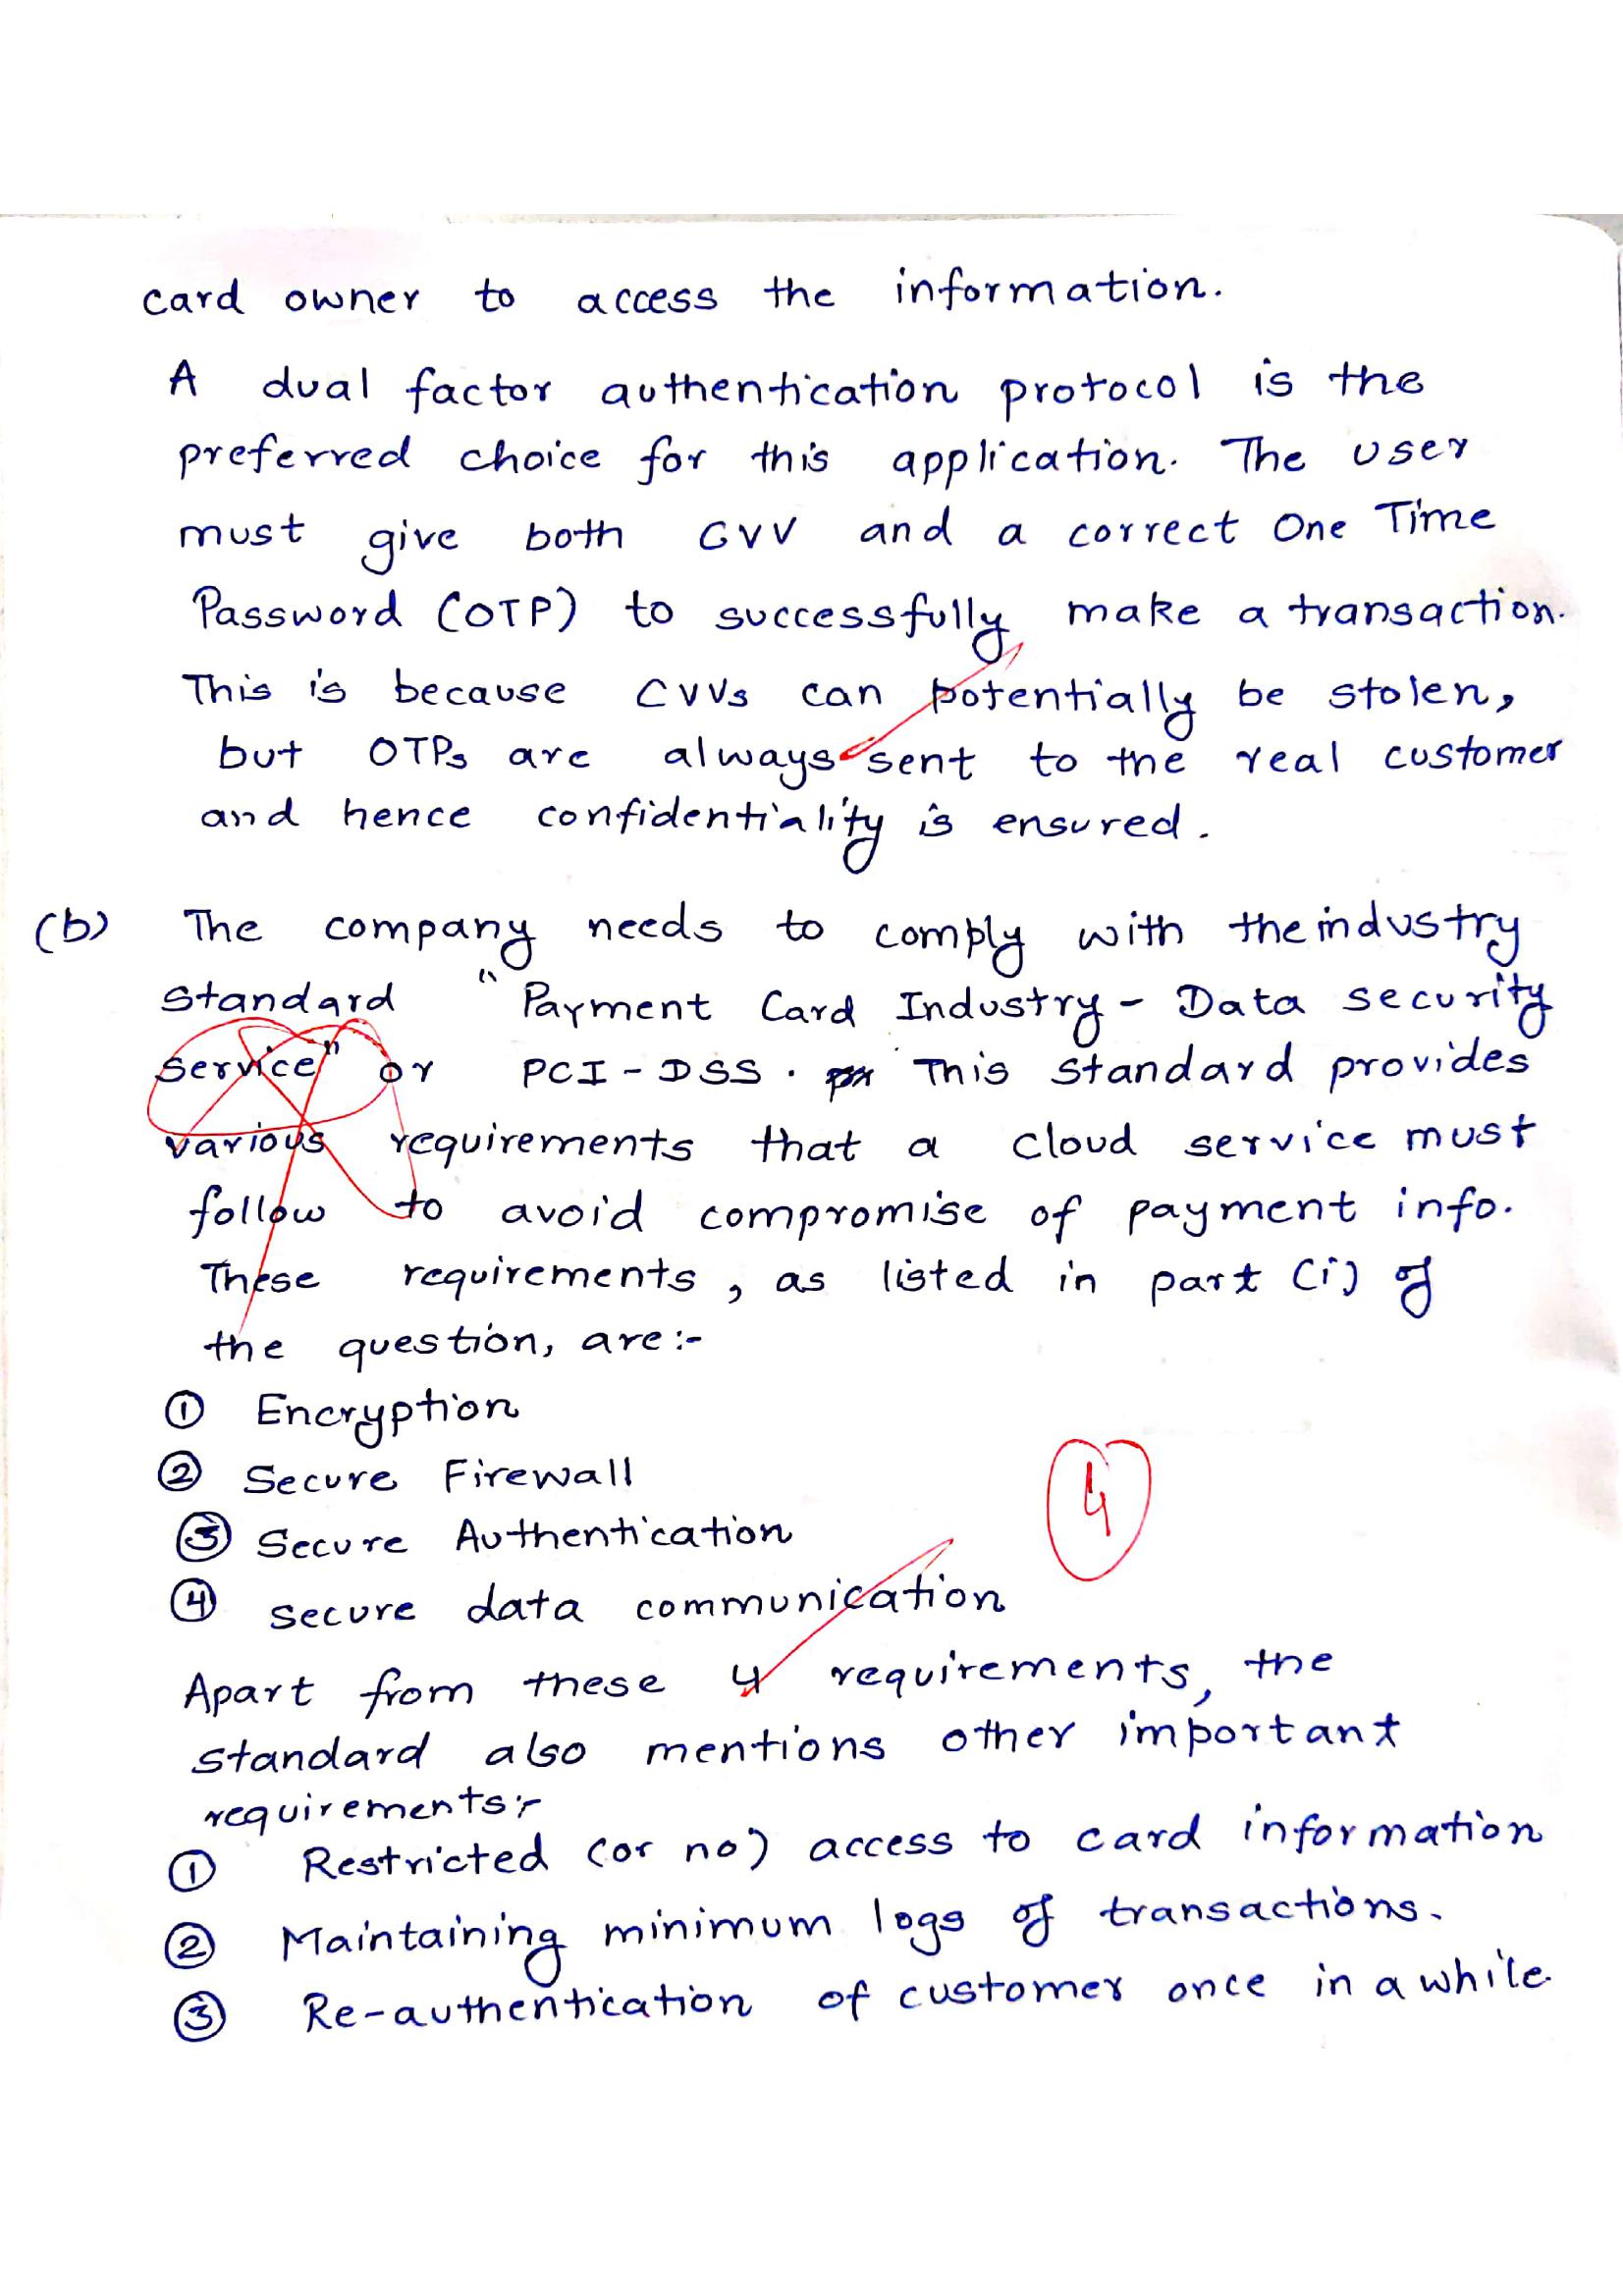 card owner to access the information.
A dual factor authentication protocol is the
preferred choice for this application. The user
must give both CVV and a correct One Time
Password (OTP) to successfully make a transaction.
This is because CVVs can potentially be stolen,
but OTPs are always sent to the real customer
and hence confidentiality is ensured.
(b) The company needs to comply with the industry
standard "Payment Card Industry - Data security
service" or PCI - DSS. This standard provides
various requirements that a cloud service must
follow to avoid compromise of payment info.
These requirements, as listed in part (i) of
the question, are:-
① Encryption
② Secure Firewall
③ Secure Authentication
④ secure data communication
4
Apart from these 4 requirements, the
standard also mentions other important
requirements:-
① Restricted (or no) access to card information
② Maintaining minimum logs of transactions.
③ Re-authentication of customer once in a while.